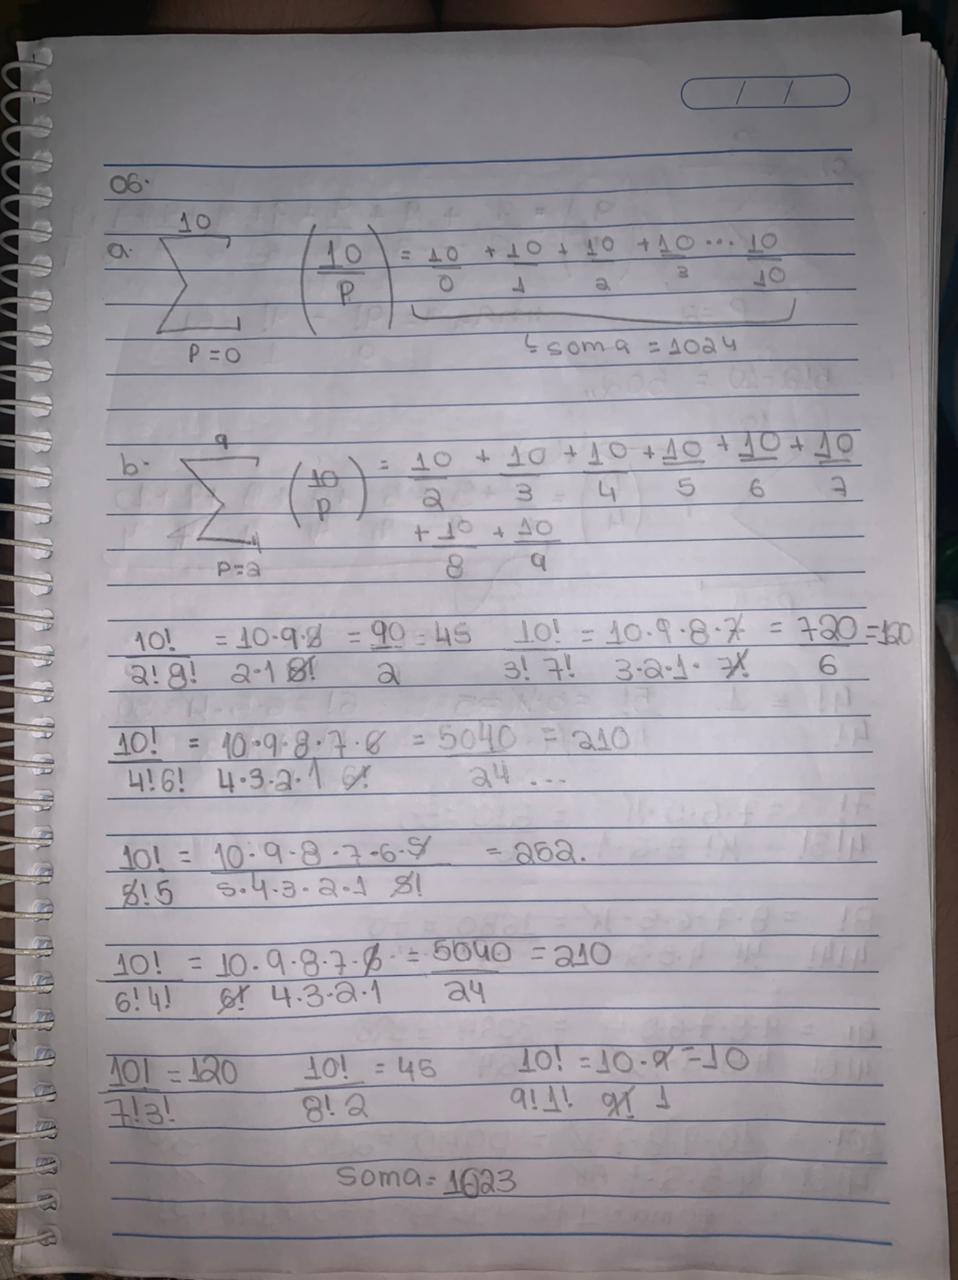 06.
a. 10 ∑ P=0 (10/P) = 10/0 + 10/1 + 10/2 + 10/3 ... 10/10
↳ soma = 1024
b. 9 ∑ P=2 (10/P) = 10/2 + 10/3 + 10/4 + 10/5 + 10/6 + 10/7
+ 10/8 + 10/9
10!/2!8! = 10·9·8/2·1 8! = 90/2 = 45 10!/3!7! = 10·9·8·7/3·2·1·7! = 720/6 = 120
10!/4!6! = 10·9·8·7·6/4·3·2·1 6! = 5040/24 = 210 ...
10!/5!5 = 10·9·8·7·6·5/5·4·3·2·1 5! = 252.
10!/6!4! = 10·9·8·7·6/6! 4·3·2·1 = 5040/24 = 210
10!/7!3! = 120 10!/8!2 = 45 10!/9!1! = 10·9/9! 1 = 10
Soma = 1023